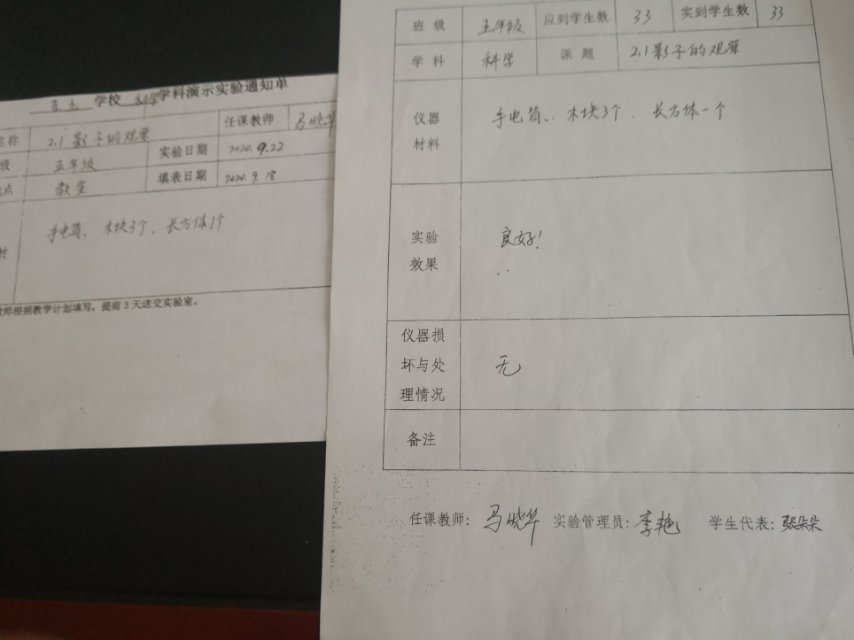 学校 科学学科演示实验通知单
名称 2.1影子的观察 任课教师 马晓华
级 五年级 实验日期 2020.9.22
点 教室 填表日期 2020.9.18
材 手电筒、木块3个、长方体1个
教师根据教学计划填写，提前3天送交实验室。
班级 五年级 应到学生数 33 实到学生数 33
学科 科学 课题 2.1影子的观察
仪器 手电筒、木块3个、长方体一个
材料
实验 良好!
效果
仪器损
坏与处 无
理情况
备注
任课教师: 马晓华 实验管理员: 李艳 学生代表: 张朵朵